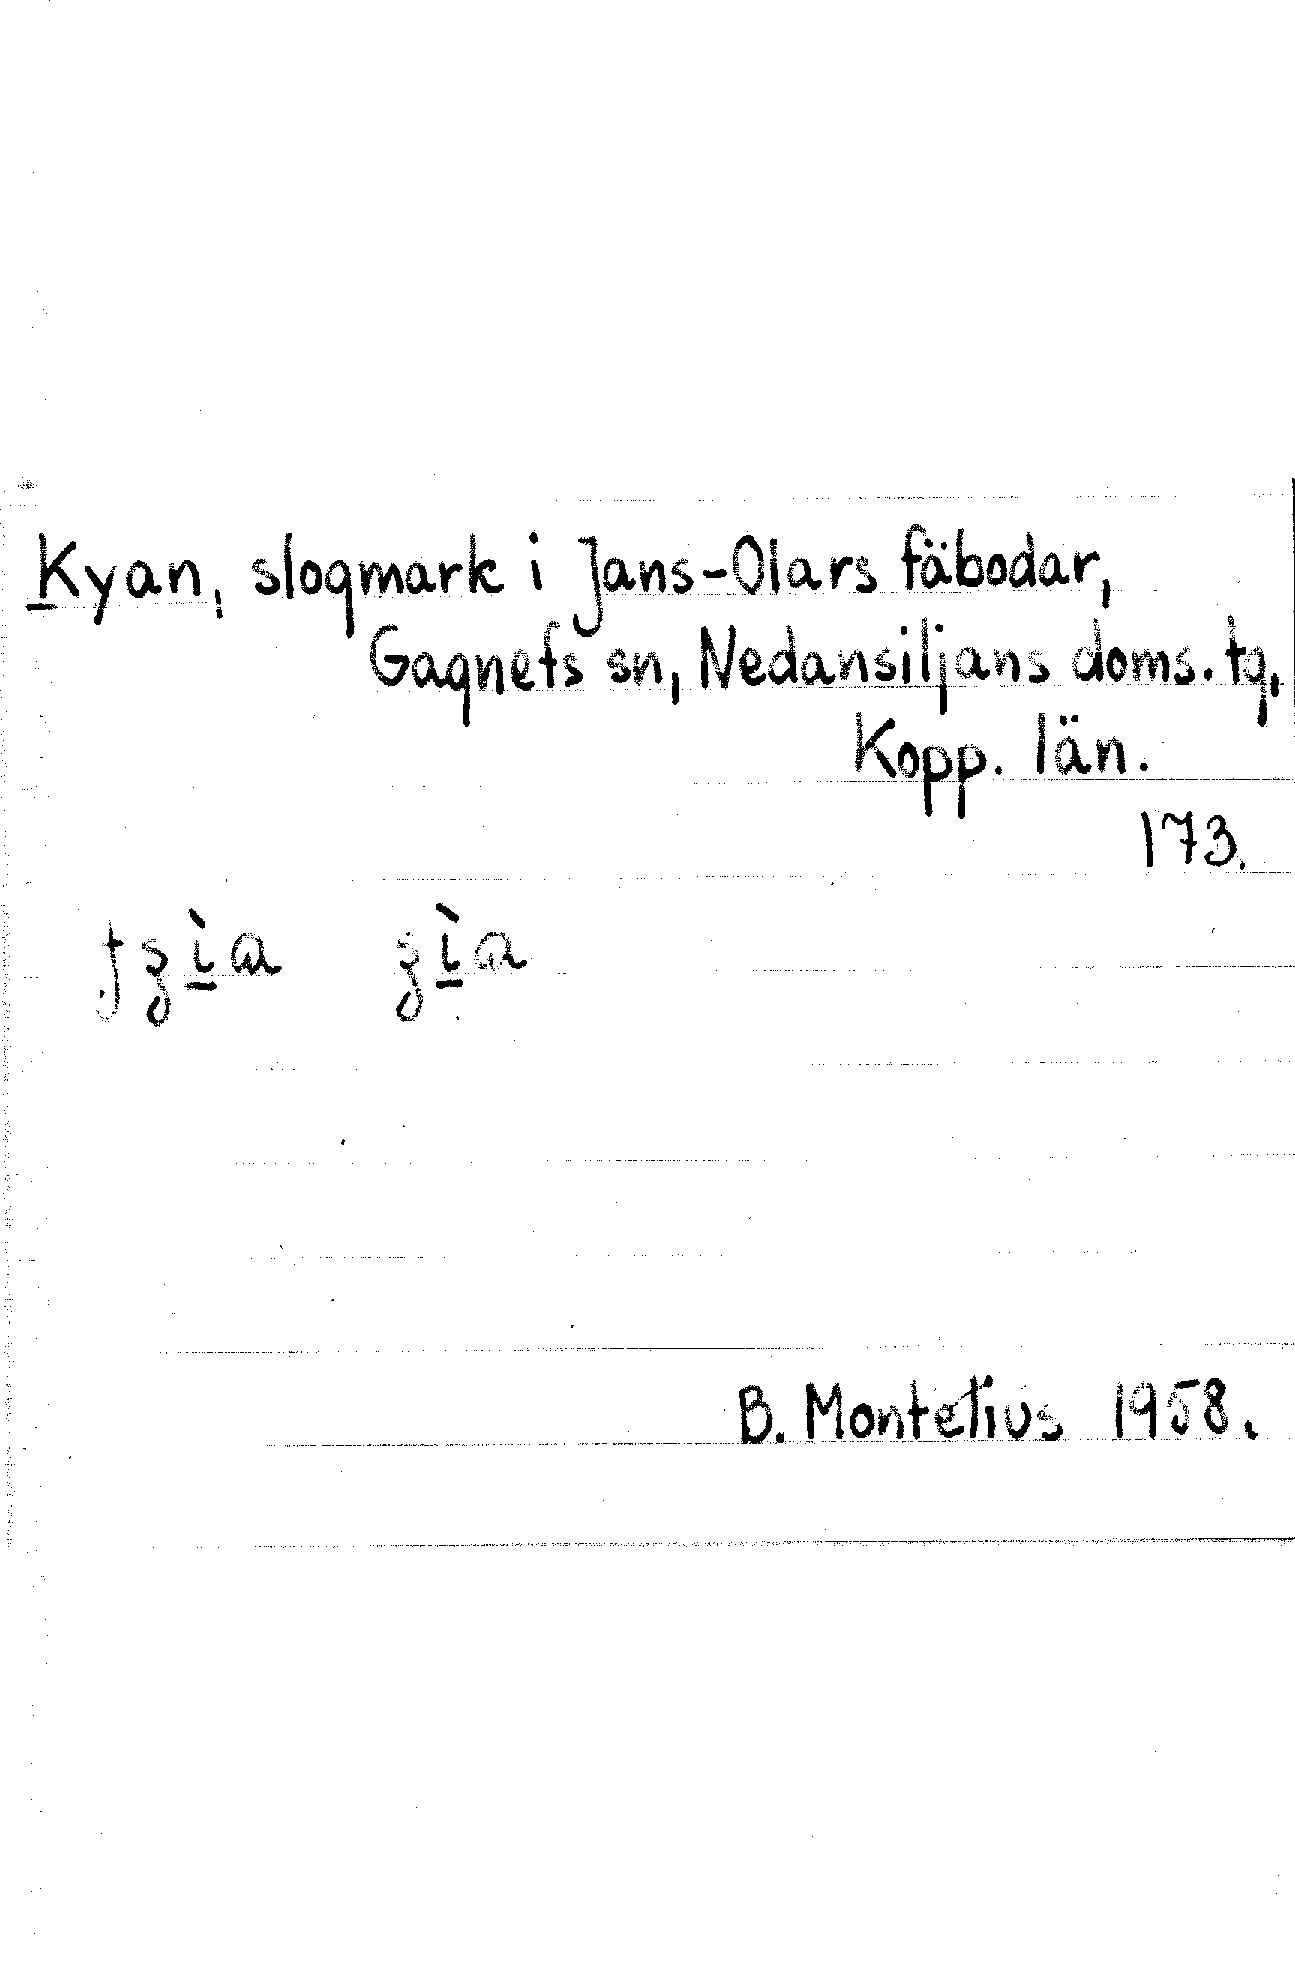 Kyan, slogmark i Jans-Olars fäbodar,
Gagnefs sn, Nedansiljans doms. tg,
Kopp. län.
173.
B. Montelius 1958.